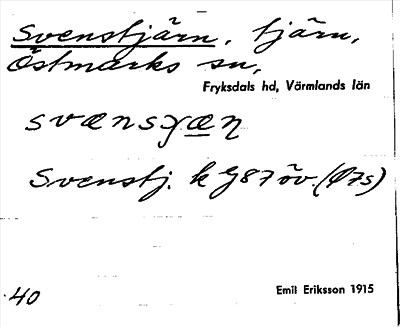 Svenstjärn, tjärn,
Östmarks sn,
Fryksdals hd, Värmlands län
Svenstj. k G87 öv. (Ø7s)
40
Emil Eriksson 1915